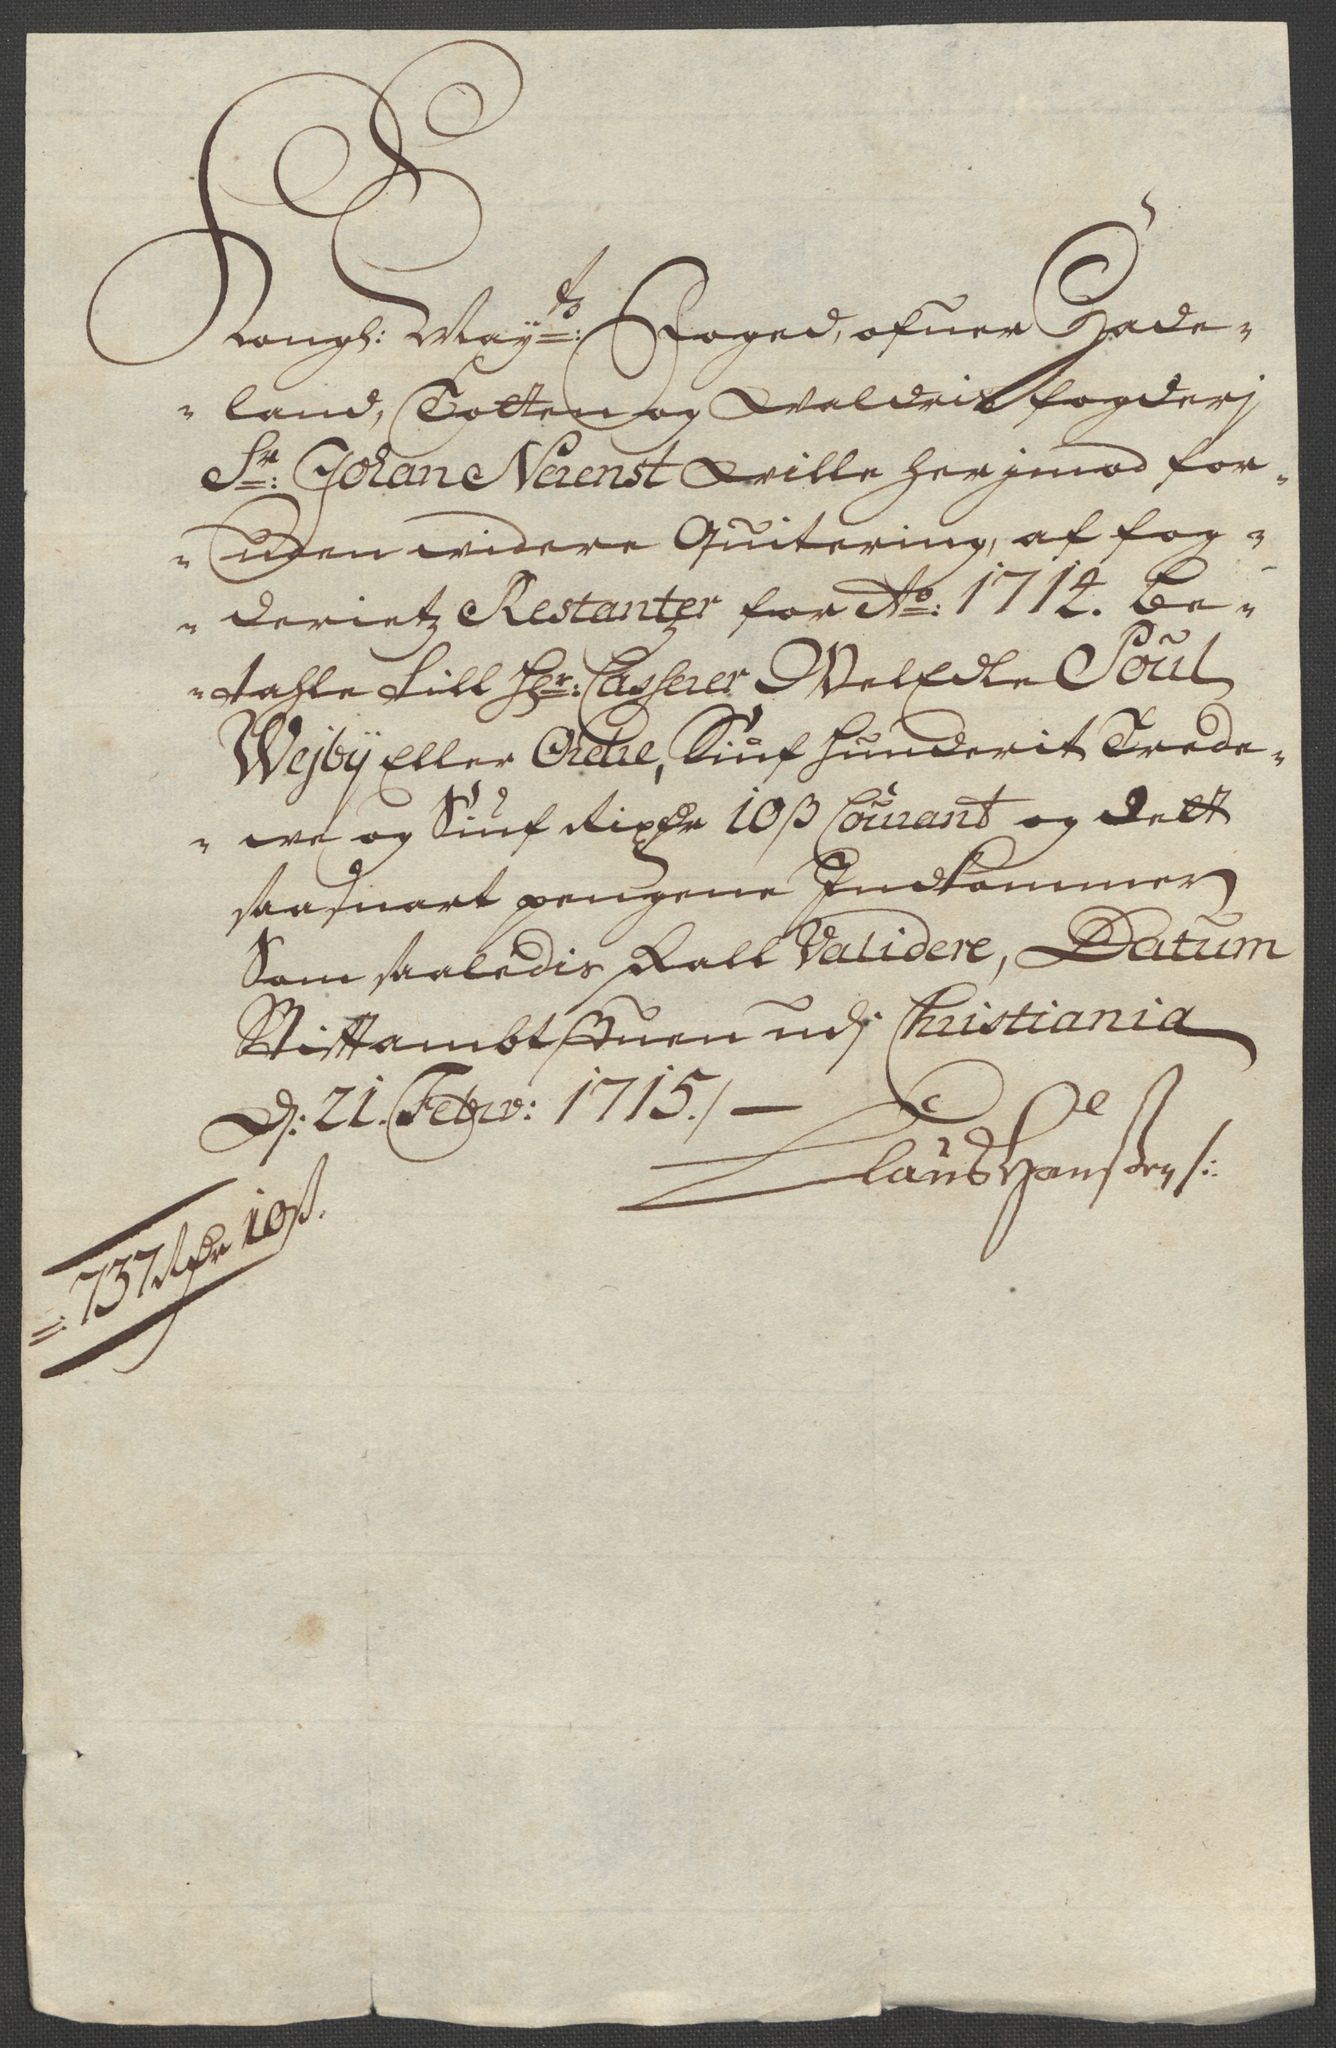 Kongl: May:ts Foged, ofuer Hade-
- land, Totten og Waldris fogderj
Sr: Johan Nerenst Wille herjmod for-
- uden widere Quitering, af fog-
- derietz Restantzer for Ao: 1714. be-
- tahle till Hr: Casserer WelEdle Poul
Wejby Eller Ordre, Siuf hunderit Trede-
- we og Siuf Rixdr 10 ß Courant og dett
saasnart pengene Indkommer
Som saaledis skall Validere, Datum
Stiftambtstuen udj Christiania
d: 21. Febrv: 1715./-
Claus Hansøen /:
=: 737 Rdr 10 ß.